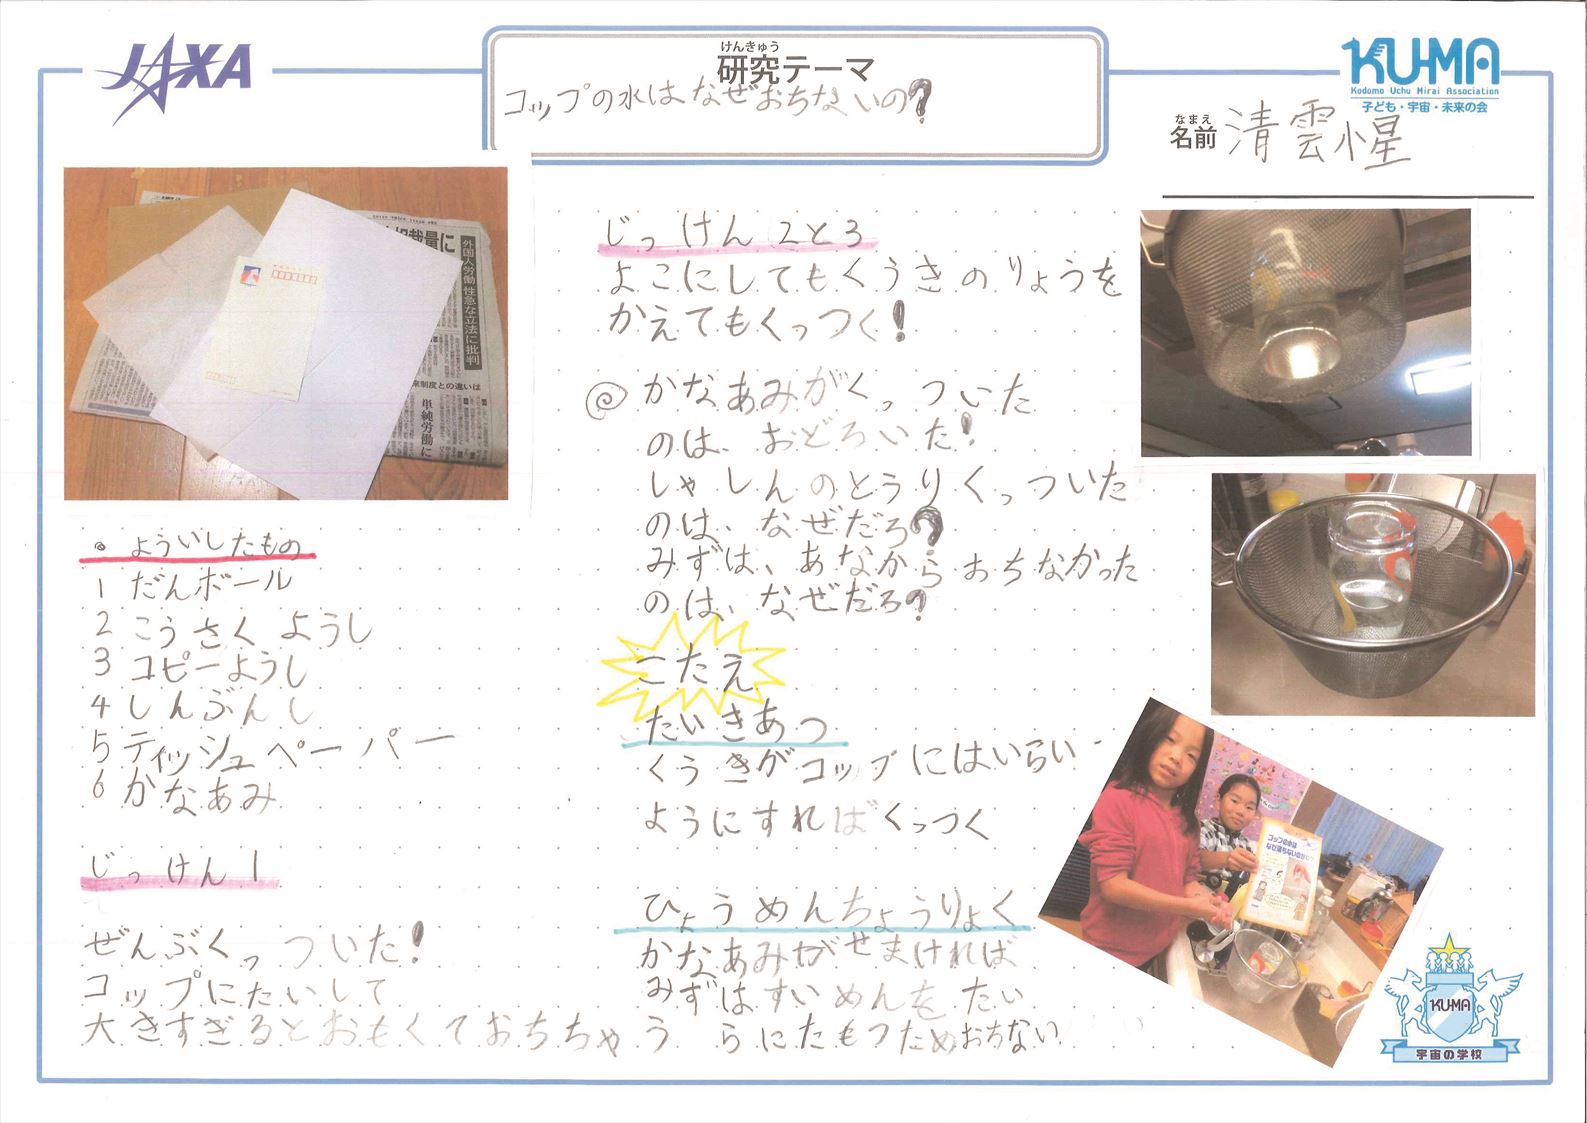 JAXA
けんきゅう
研究テーマ
コップの水はなぜおちないの?
KUMA
Kodomo Uchu Mirai Association
子ども・宇宙・未来の会
なまえ
名前 清雲小星
裁量に
外国人労働 性急な立法に批判
来制度との違いは
単純労働に
◦ よういしたもの
1 だんボール
2 こうさくようし
3 コピーようし
4 しんぶんし
5 ティッシュペーパー
6 かなあみ
じっけん1
ぜんぶくっついた!
コップにたいして
大きすぎるとおもくておちちゃう
じっけん2と3
よこにしてもくうきのりょうを
かえてもくっつく!
◎ かなあみがくっついた
のは、おどろいた!
しゃしんのとうりくっついた
のは、なぜだろ?
みずは、あなからおちなかった
のは、なぜだろ?
こたえ
たいきあつ
くうきがコップにはいらい
ようにすればくっつく
ひょうめんちょうりょく
かなあみがせまければ
みずはすいめんをたい
らにたもつためおちない
コップの水は
なぜ落ちないのか?
KUMA
宇宙の学校